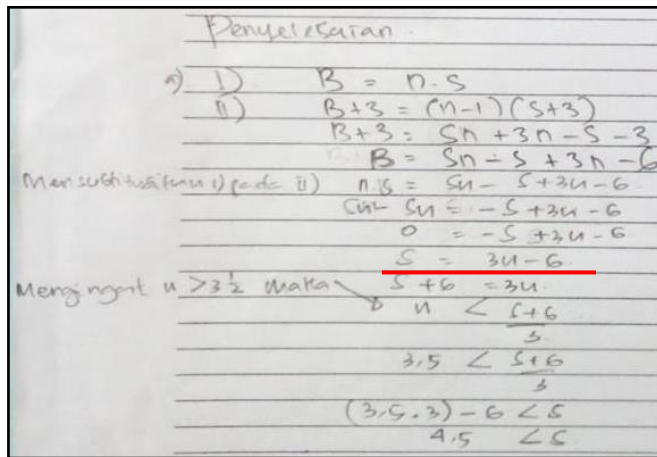 Penyelesaian.
a) I) B = n.s
II) B+3 = (n-1)(s+3)
B+3 = sn + 3n - s - 3
B = sn - s + 3n - 6
Mensubtitusikan I) pada II) n.s = sn - s + 3n - 6
sn - sn = -s + 3n - 6
0 = -s + 3n - 6
s = 3n - 6
Mengingat n > 3 1/2 maka s + 6 = 3n
n < s+6/3
3,5 < s+6/3
(3,5 . 3) - 6 < s
4,5 < s